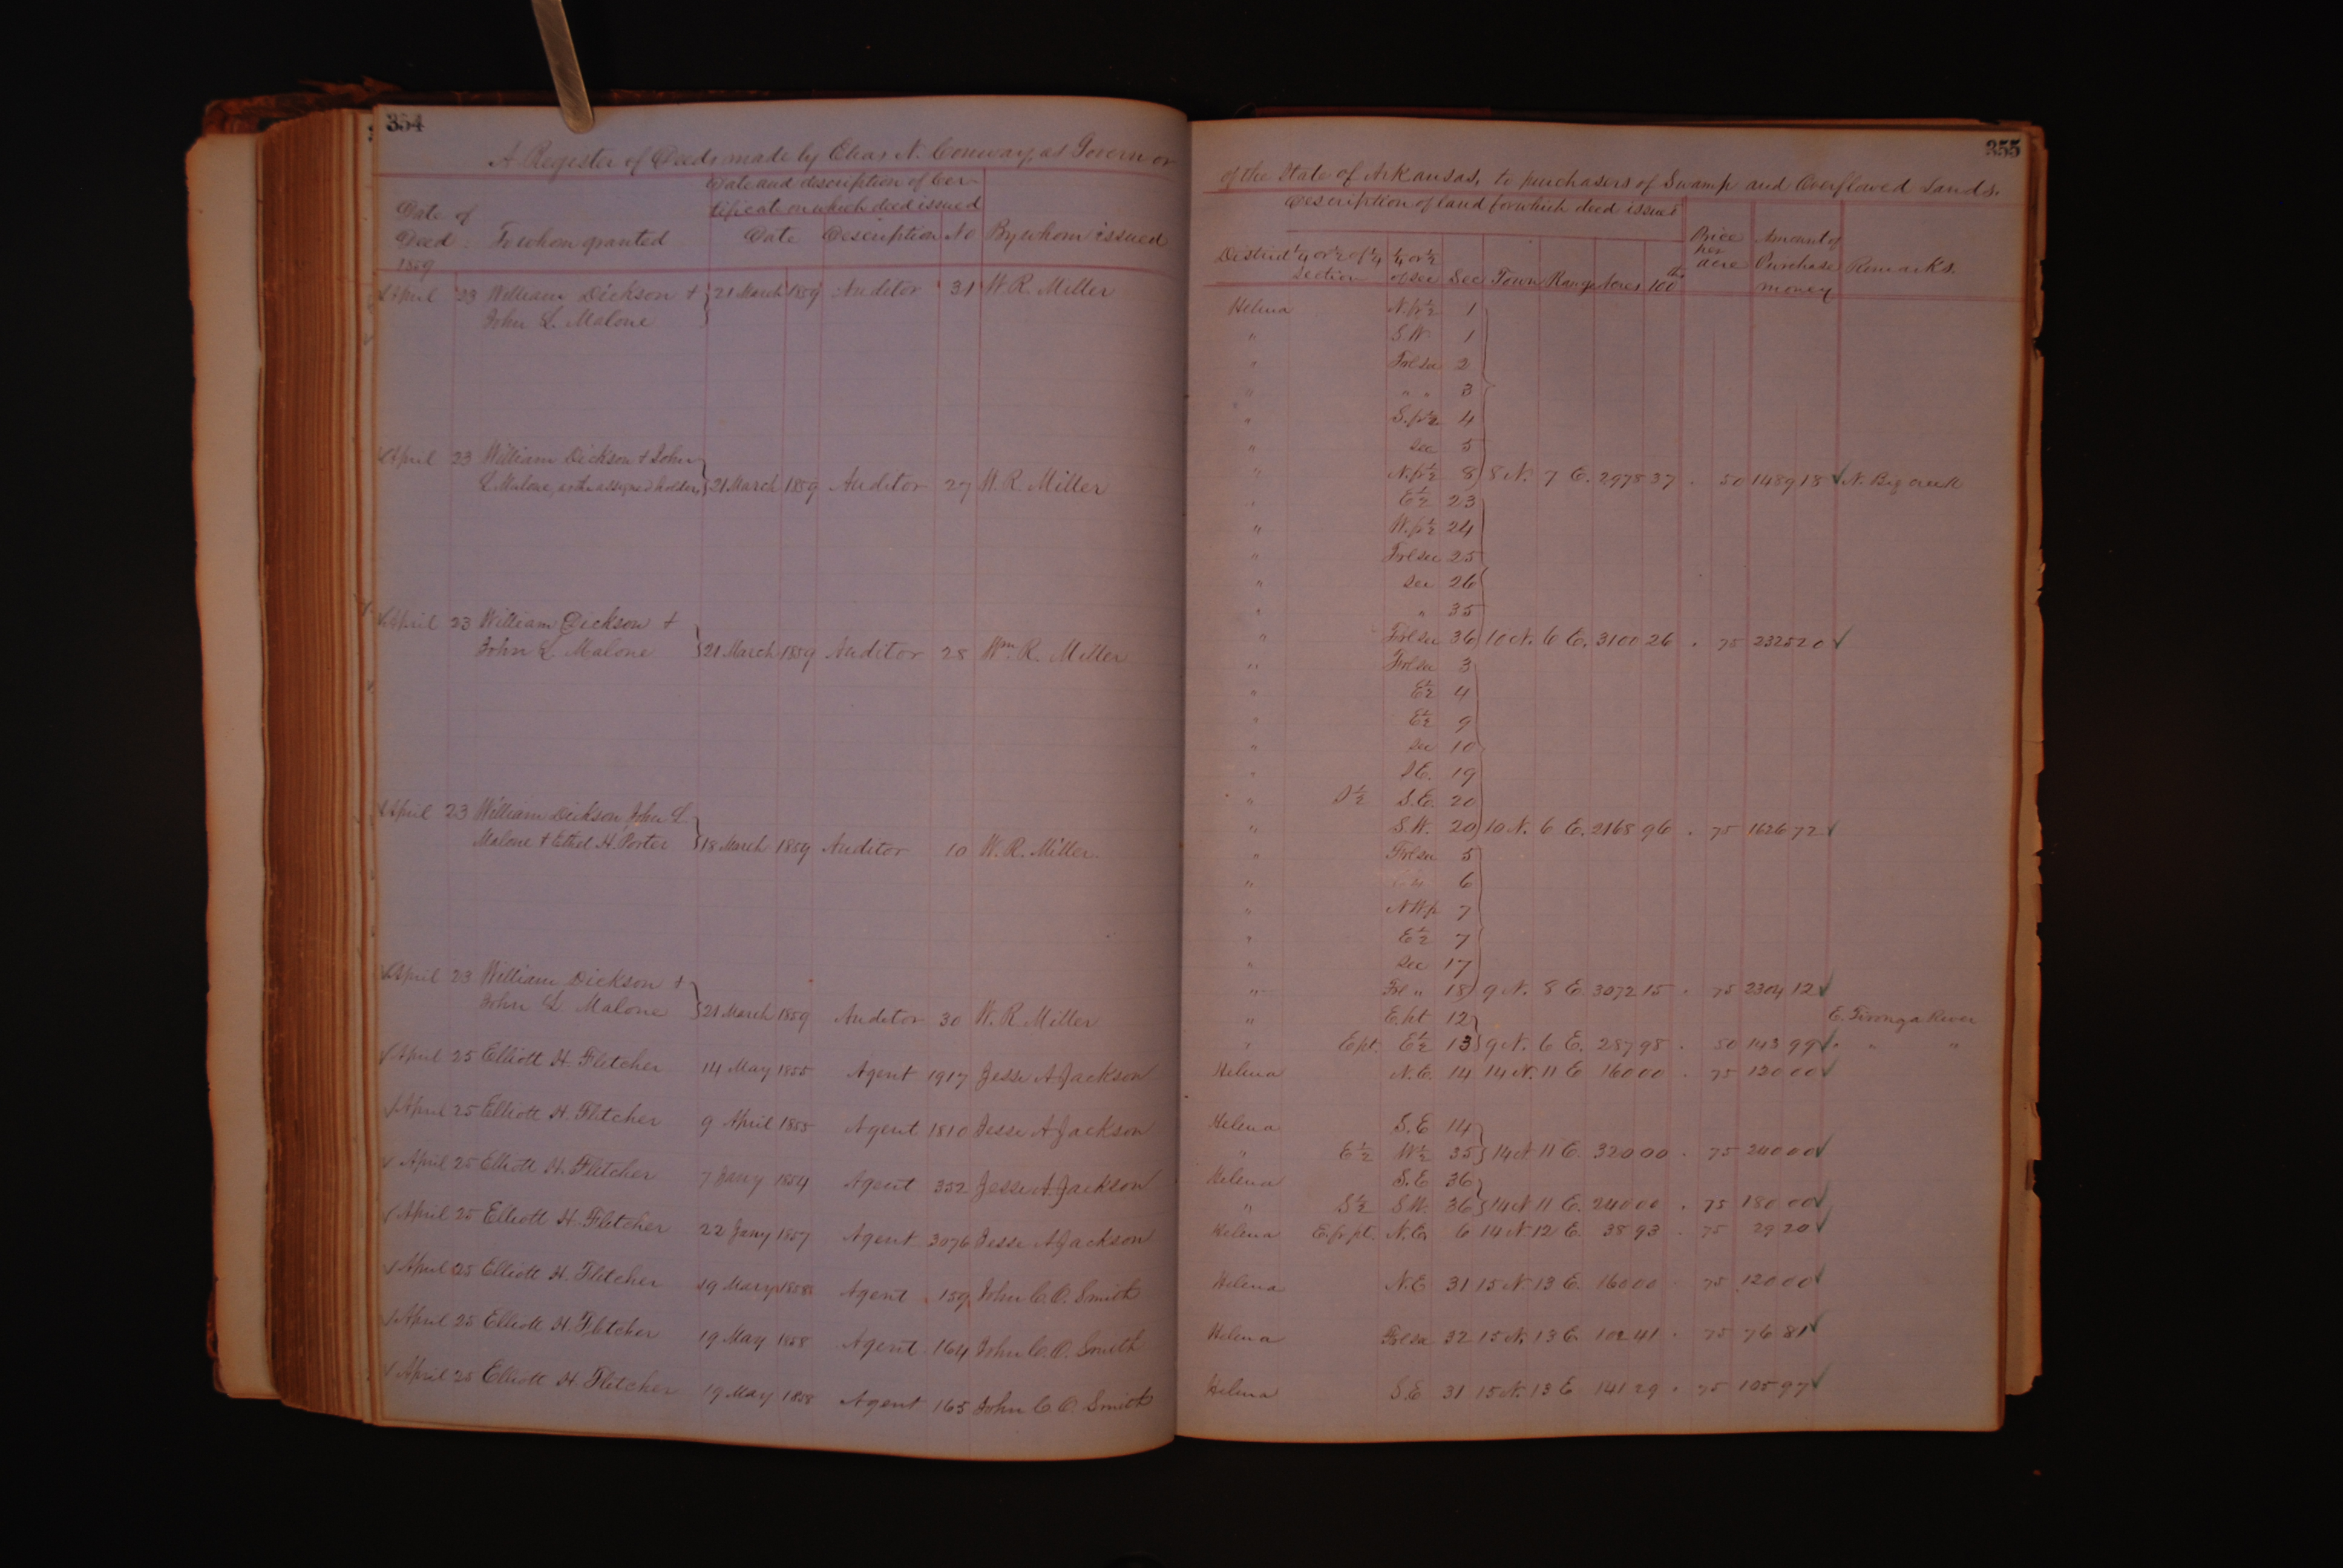 354
A Register of Deeds made by Elias N. Conway, as Governor
Date of Deed 1859 To whom granted Date and description of Certificate on which deed issued Date Description No By whom issued
April 23 William Dickson + 21 March 1859 Auditor 31 W. R. Miller
John L. Malone
April 23 William Dickson + John
L. Malone, as the assigned holders 21 March 1859 Auditor 27 W. R. Miller
April 23 William Dickson +
John L. Malone 21 March 1859 Auditor 28 Wm. R. Miller
April 23 William Dickson, John L.
Malone + Ethel H. Porter 18 March 1859 Auditor 10 W. R. Miller
April 23 William Dickson +
John L Malone 21 March 1859 Auditor 30 W. R. Miller
April 25 Elliott H. Fletcher 14 May 1855 Agent 1917 Jesse A Jackson
April 25 Elliott H. Fletcher 9 April 1855 Agent 1810 Jesse A Jackson
April 25 Elliott H. Fletcher 7 Jany 1854 Agent 352 Jesse A. Jackson
April 25 Elliott H. Fletcher 22 Jany 1857 Agent 3076 Jesse A Jackson
April 25 Elliott H. Fletcher 19 May 1858 Agent 159 John C. O. Smith
April 25 Elliott H. Fletcher 19 May 1858 Agent 164 John C. O. Smith
April 25 Elliott H. Fletcher 19 May 1858 Agent 165 John C. O. Smith
355
of the State of Arkansas, to purchasers of Swamp and Overflowed Lands.
Description of land for which deed issued
District ¼ or ½ of ¼ Section ¼ or ½ of sec Sec Town Range Acres 100ths Price per acre Amount of Purchase money Remarks.
Helena N. fr ½ 1
" S.W. 1
" Frl sec 2
" " " 3
" S. fr ½ 4
" Sec 5
" N. fr ½ 8 8 N. 7 E. 2978 37 . 50 1489 18 ✓ N. Big Creek
" E ½ 23
" W. fr ½ 24
" Frl sec 25
" Sec 26
" " 35
" Frl sec 36 10 N. 6 E. 3100 26 . 75 2325 20 ✓
" Frl sec 3
" E ½ 4
" E ½ 9
" Sec 10
" S E. 19
" S ½ S.E. 20
" S.W. 20 10 N. 6 E. 2168 96 . 75 1626 72 ✓
" Frl sec 5
" " " 6
" N W fr 7
" E ½ 7
" Sec 17
" Frl " 18 9 N. 8 E. 3072 15 . 75 2304 12 ✓
" E. pt 12 E. River
" E pt. E ½ 13 9 N. 6 E. 287 98 . 50 143 99 ✓ " " "
Helena N. E. 14 14 N. 11 E 160 00 . 75 120 00 ✓
Helena S. E 14
" E ½ W ½ 35 14 N 11 E. 320 00 . 75 240 00 ✓
Helena S. E 36
" S ½ S W. 36 14 N 11 E. 240 00 . 75 180 00 ✓
Helena E. fr pt. N. E. 6 14 N. 12 E. 38 93 . 75 29 20 ✓
Helena N. E 31 15 N. 13 E. 160 00 . 75 120 00 ✓
Helena Frl sec 32 15 N. 13 E. 102 41 . 75 76 81 ✓
Helena S. E 31 15 N. 13 E 141 29 . 75 105 97 ✓